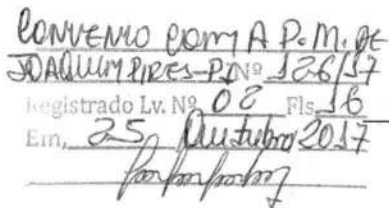 CONVENIO COM A P.M. DE
JOAQUIM PIRES-PI Nº 126/17
Registrado Lv. Nº 02 Fls 16
Em, 25 Outubro 2017